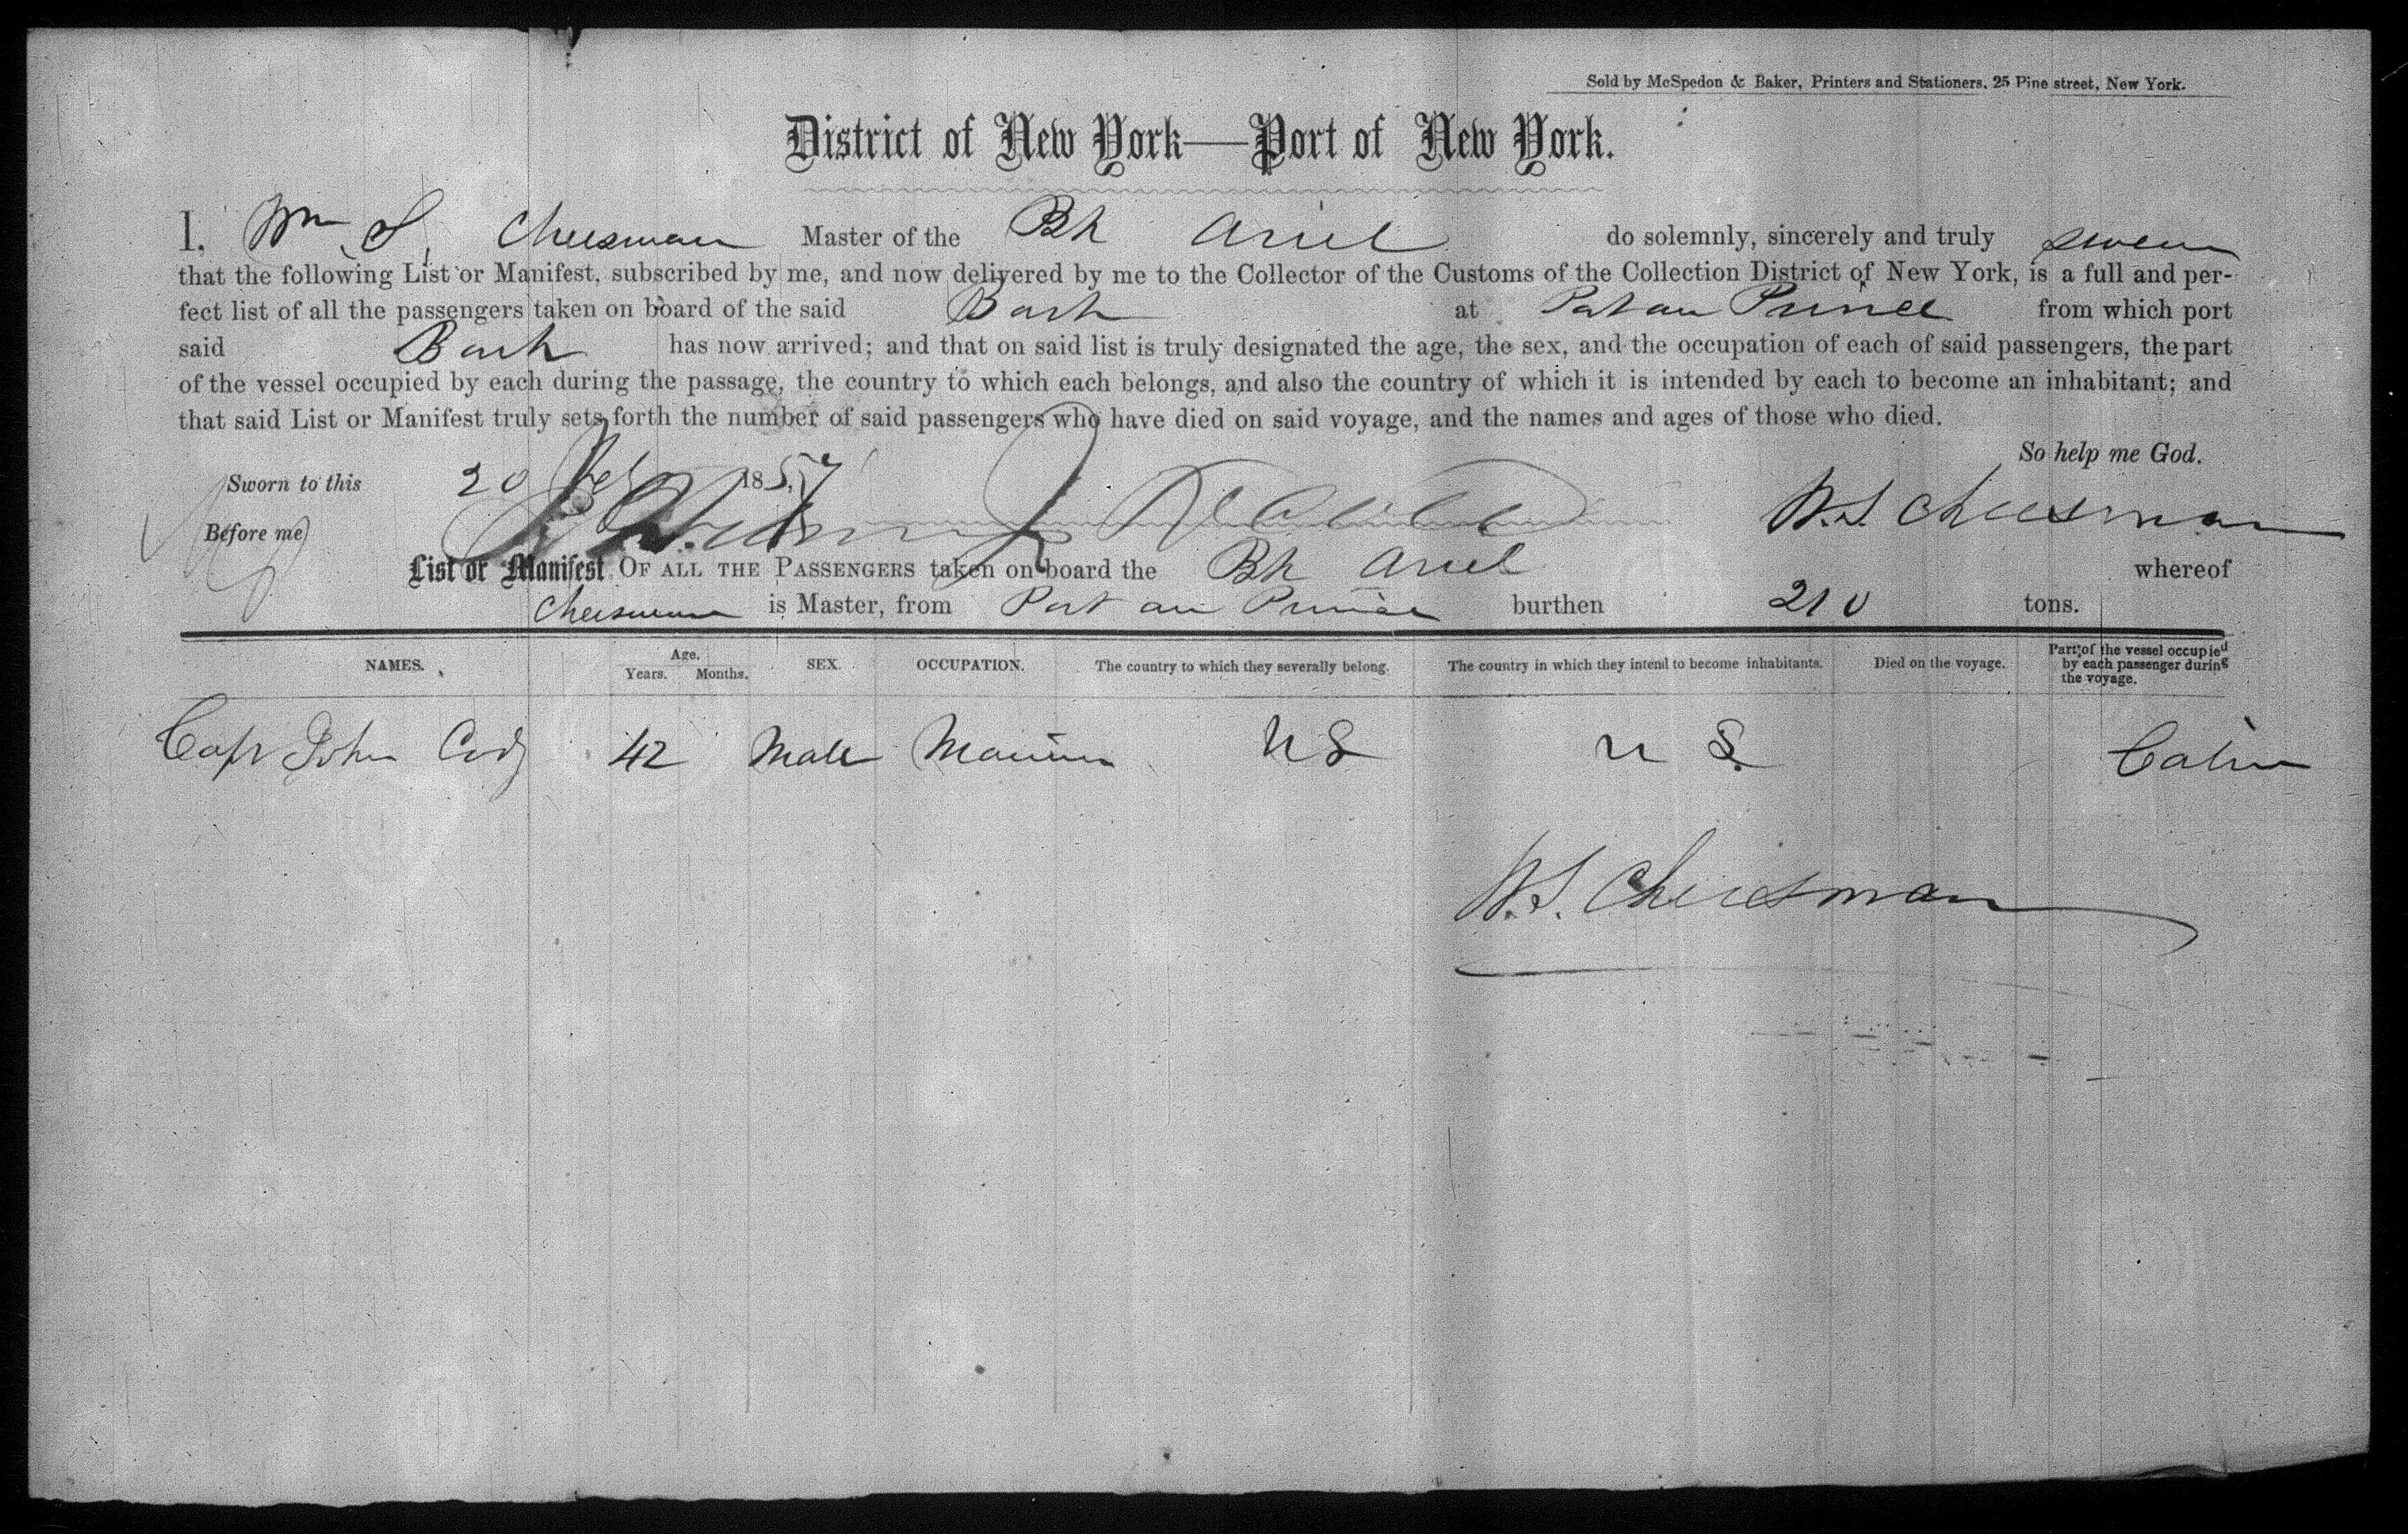 Sold by McSpedon & Baker, Printers and Stationers, 25 Pine street, New York.
District of New York—Port of New York.
I, Wm S. Cheesman Master of the Bk Ariel do solemnly, sincerely and truly swear
that the following List or Manifest, subscribed by me, and now delivered by me to the Collector of the Customs of the Collection District of New York, is a full and per-
fect list of all the passengers taken on board of the said Bark at Port au Prince from which port
said Bark has now arrived; and that on said list is truly designated the age, the sex, and the occupation of each of said passengers, the part
of the vessel occupied by each during the passage, the country to which each belongs, and also the country of which it is intended by each to become an inhabitant; and
that said List or Manifest truly sets forth the number of said passengers who have died on said voyage, and the names and ages of those who died.
So help me God.
Sworn to this 20 Feb 1857
W.S. Cheesman
Before me
List or Manifest OF ALL THE PASSENGERS taken on board the Bk Ariel whereof
Cheesman is Master, from Port au Prince burthen 210 tons.
NAMES. Age. Years. Months. SEX. OCCUPATION. The country to which they severally belong. The country in which they intend to become inhabitants. Died on the voyage. Part of the vessel occupied by each passenger during the voyage.
Capt John 42 Male Mariner U S U S. Cabin
W.S. Cheesman